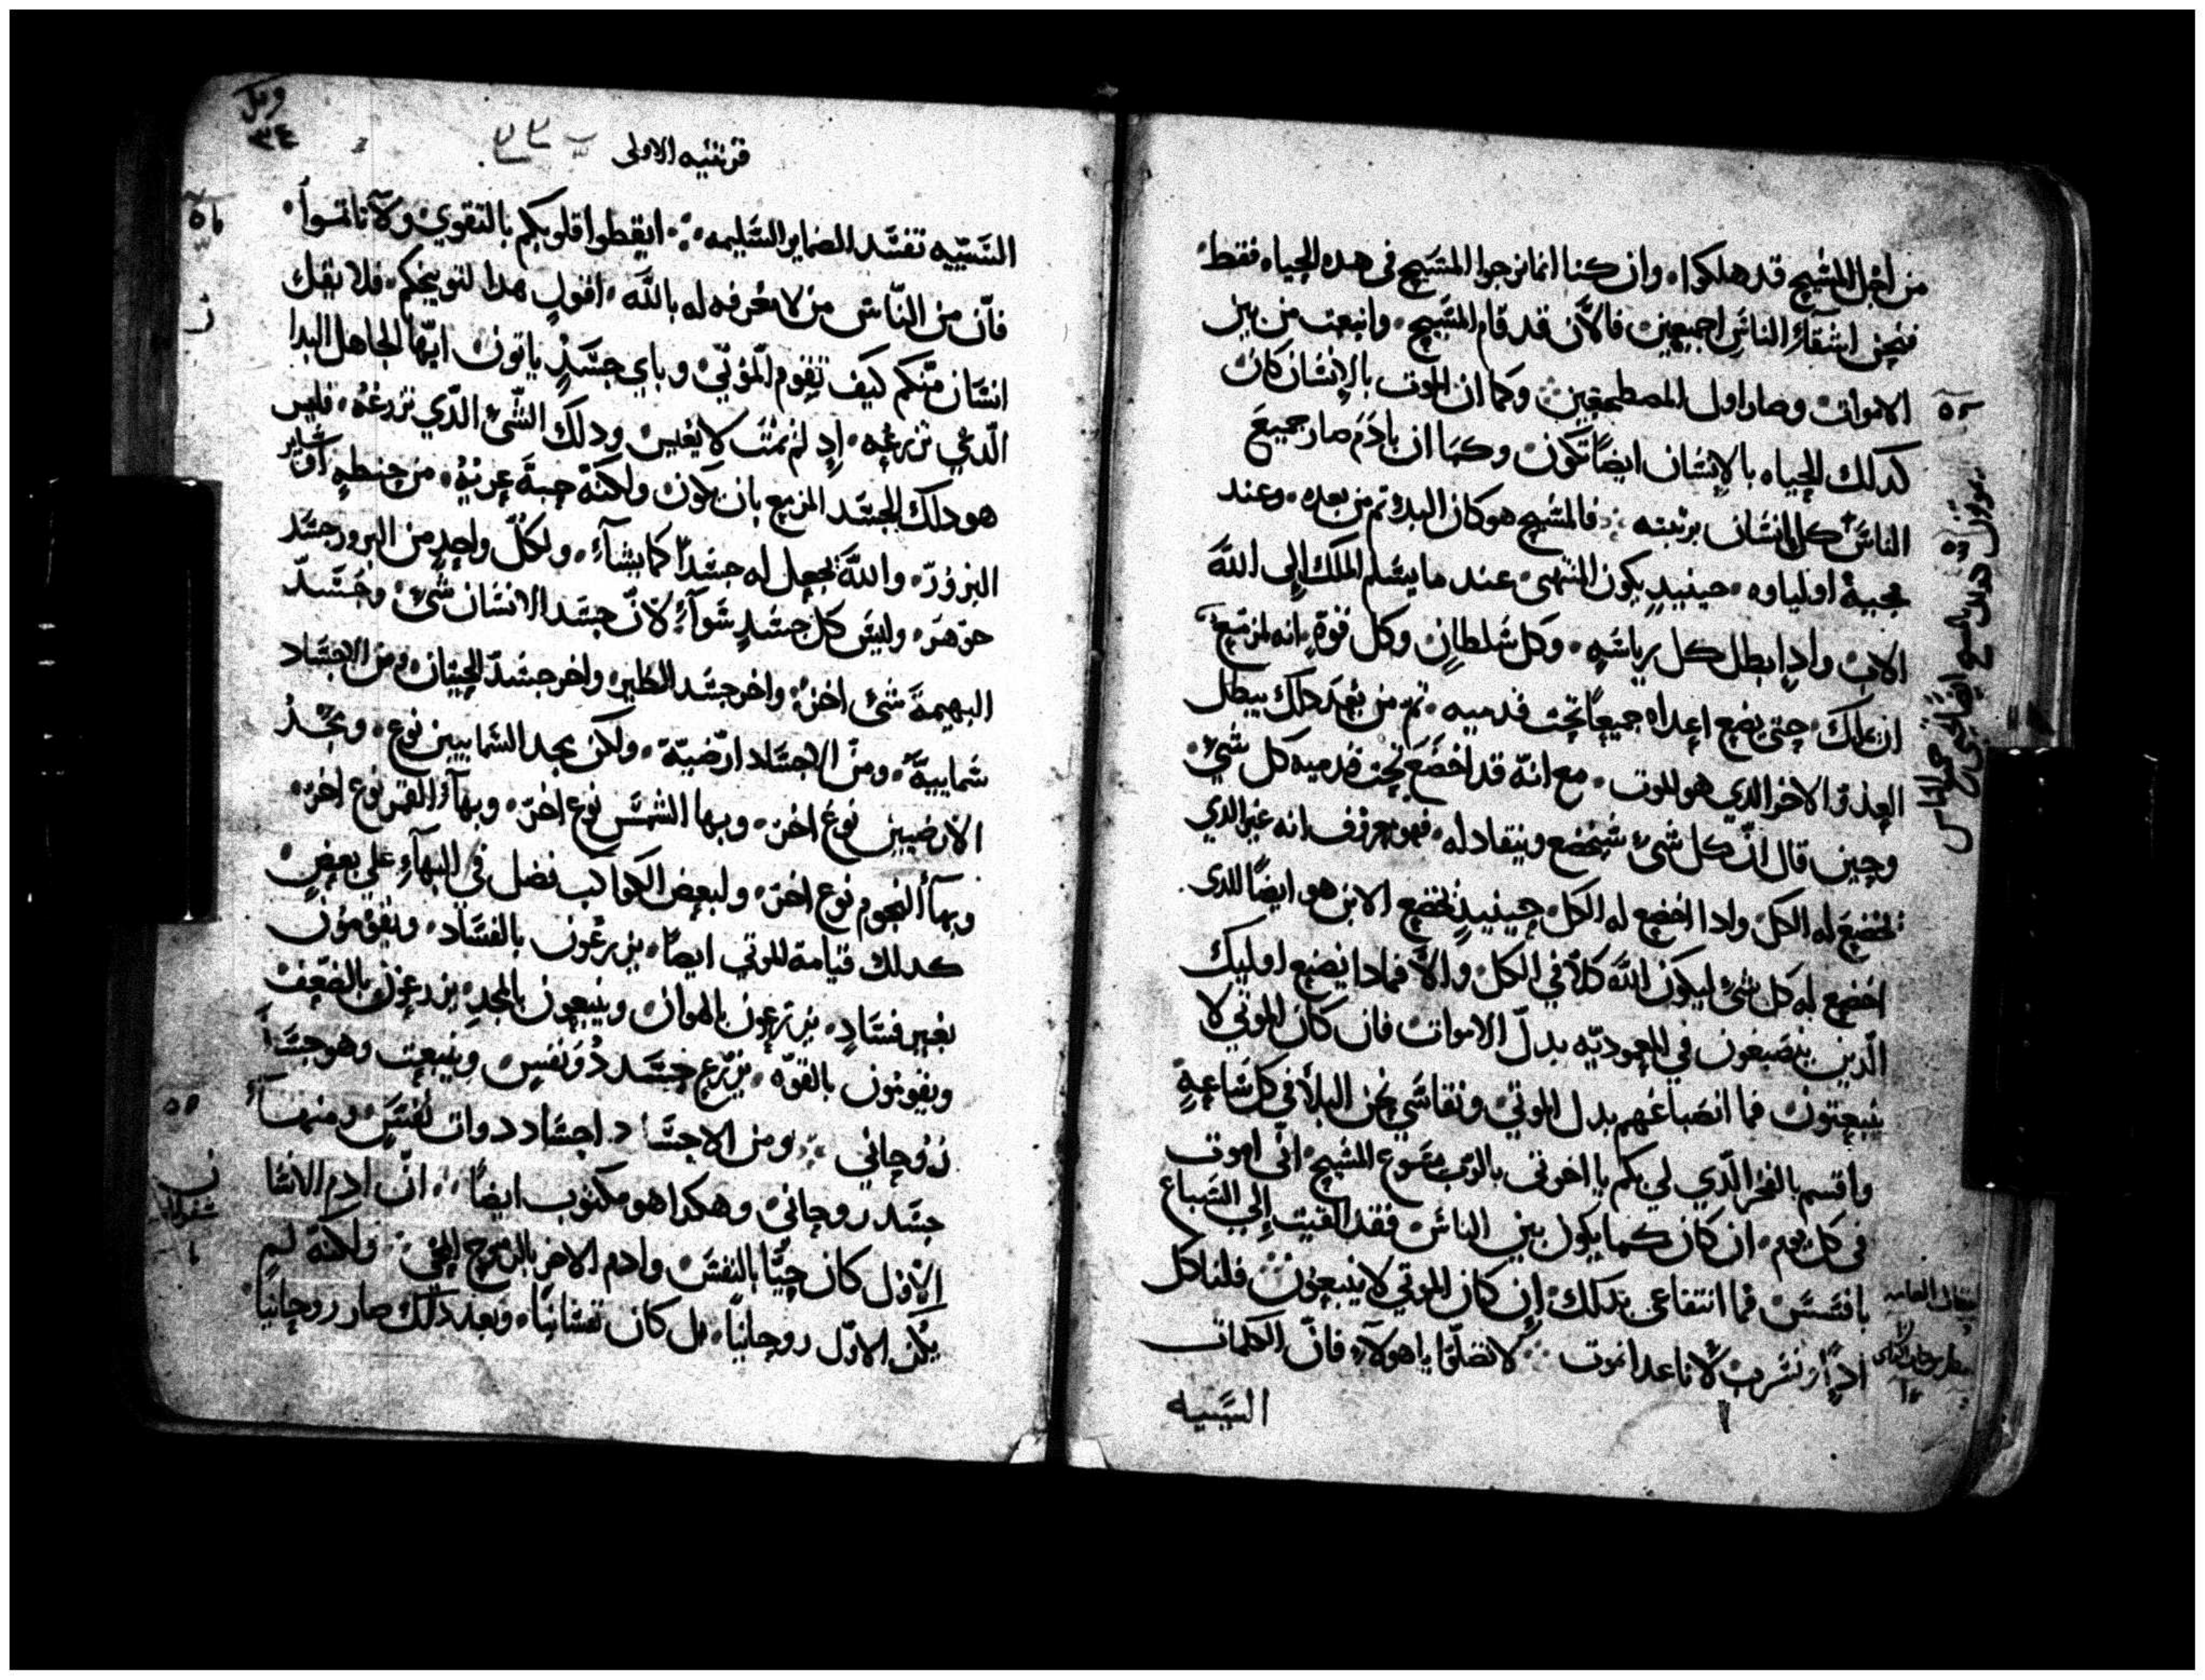 من اجل المسيح قد هلكوا. وان كنا انما نرجوا المسيح فى هذه الحياه فقط
فنحن اشقاء الناس اجمعين فالان قد قام المسيح. وانبعث من بين
الاموات وصار اول المضطجعين وكما ان الموت بالانسان كان
كدلك الحياه بالانسان ايضًا تكون وكما ان بادم صار جميع
الناس كل انسان برتبته فالمسيح هو كان البدء ثم من بعده. وعند
مجيئه اولياوه. حينيدٍ يكون المنتهى عند ما يسلم الملك الى الله
الاب وادا ابطل كل رياسه. وكل سلطان وكل قوة. انه لمزمع
ان يملك. حتى يضع اعداه جميعا تحت قدميه. ثم من بعد دلك يبطل
العدو الاخر الدي هو الموت. مع انه قد اخضع تحت قدميه كل شي
وحين قال ان كل شى سيخضع وينقاد له. فهو معروف انه غير الدي
تخضع له الكل. وادا اخضع له الكل. حينيدٍ يخضع الابن هو ايضًا للدى
اخضع له كل شى ليكون الله كلا في الكل. والا فمادا يصنع اوليك
الدين ينصبغون في المعموديه بدل الاموات فان كان الموتي لا
ينبعثون فما انصباغهم بدل الموتى ونقاسي نحن البلا في كل ساعة
واقسم بالفخر الدي لي بكم يا اخوتى بالرب يسوع المسيح. انى اموت
فى كل يوم. ان كان كما يكون بين الناس فقد القيت الى السباع
بافسس فما انتفاعى بدلك ان كان الموتي لا ينبعثون فلناكل
ادًا ونشرب لاننا غدا نموت لا تضلوا يا هولاء. فان الكلمات
السييه
قرنتيه الاولى
السييه تفسد الضماير السليمه ايقظوا قلوبكم بالتقوي ولا تاثموا.
فان من الناس من لا معرفه له بالله. اقول هدا لتوبيخكم. فلا يقل
انسان منكم كيف تقوم الموتي وباي جسدٍ ياتون ايها الجاهل البدا
الدي تزرعه. اد لم يمت لا يعيش ودلك الشى الدي تزرعه. فليس
هو دلك الجسد المزمع بان يكون ولكنه حبة عريه. من حنطه او ساير
البزور. والله يجعل له جسدا كما يشاء. ولكل واحدٍ من البزور جسد
جوهره. وليس كل جسدٍ سواء لان جسد الانسان شى. وجسد
البهيمة شى اخر. واخر جسد الطير. واخر جسد الحيتان. ومن الاجساد
سماييه. ومن الاجساد ارضيه. ولكن مجد السماييين نوع. ومجد
الارضيين نوع اخر. وبها الشمس نوع اخر. وبهاء القمر نوع اخر.
وبهاء النجوم نوع اخر. ولبعض الكواكب فضل في البهاء على بعض.
كدلك قيامة الموتي ايضًا. يزرعون بالفساد. ويقومون
بغير فسادٍ. يزرعون بالهوان وينبعثون بالمجد. يزرعون بالضعف
ويقومون بالقوه. يزرع جسد دو نفس وينبعث وهو جسدا
روحاني ومن الاجساد اجساد دوات نفس ومنها
جسد روحاني وهكدا هو مكتوب ايضًا ان ادم الانسا
الاول كان حيًا بالنفس وادم الاخر بالروح المحيي ولكنه لم
يكن الاول روحانيًا. بل كان نفسانيًا. وبعد دلك صار روحانيًا.